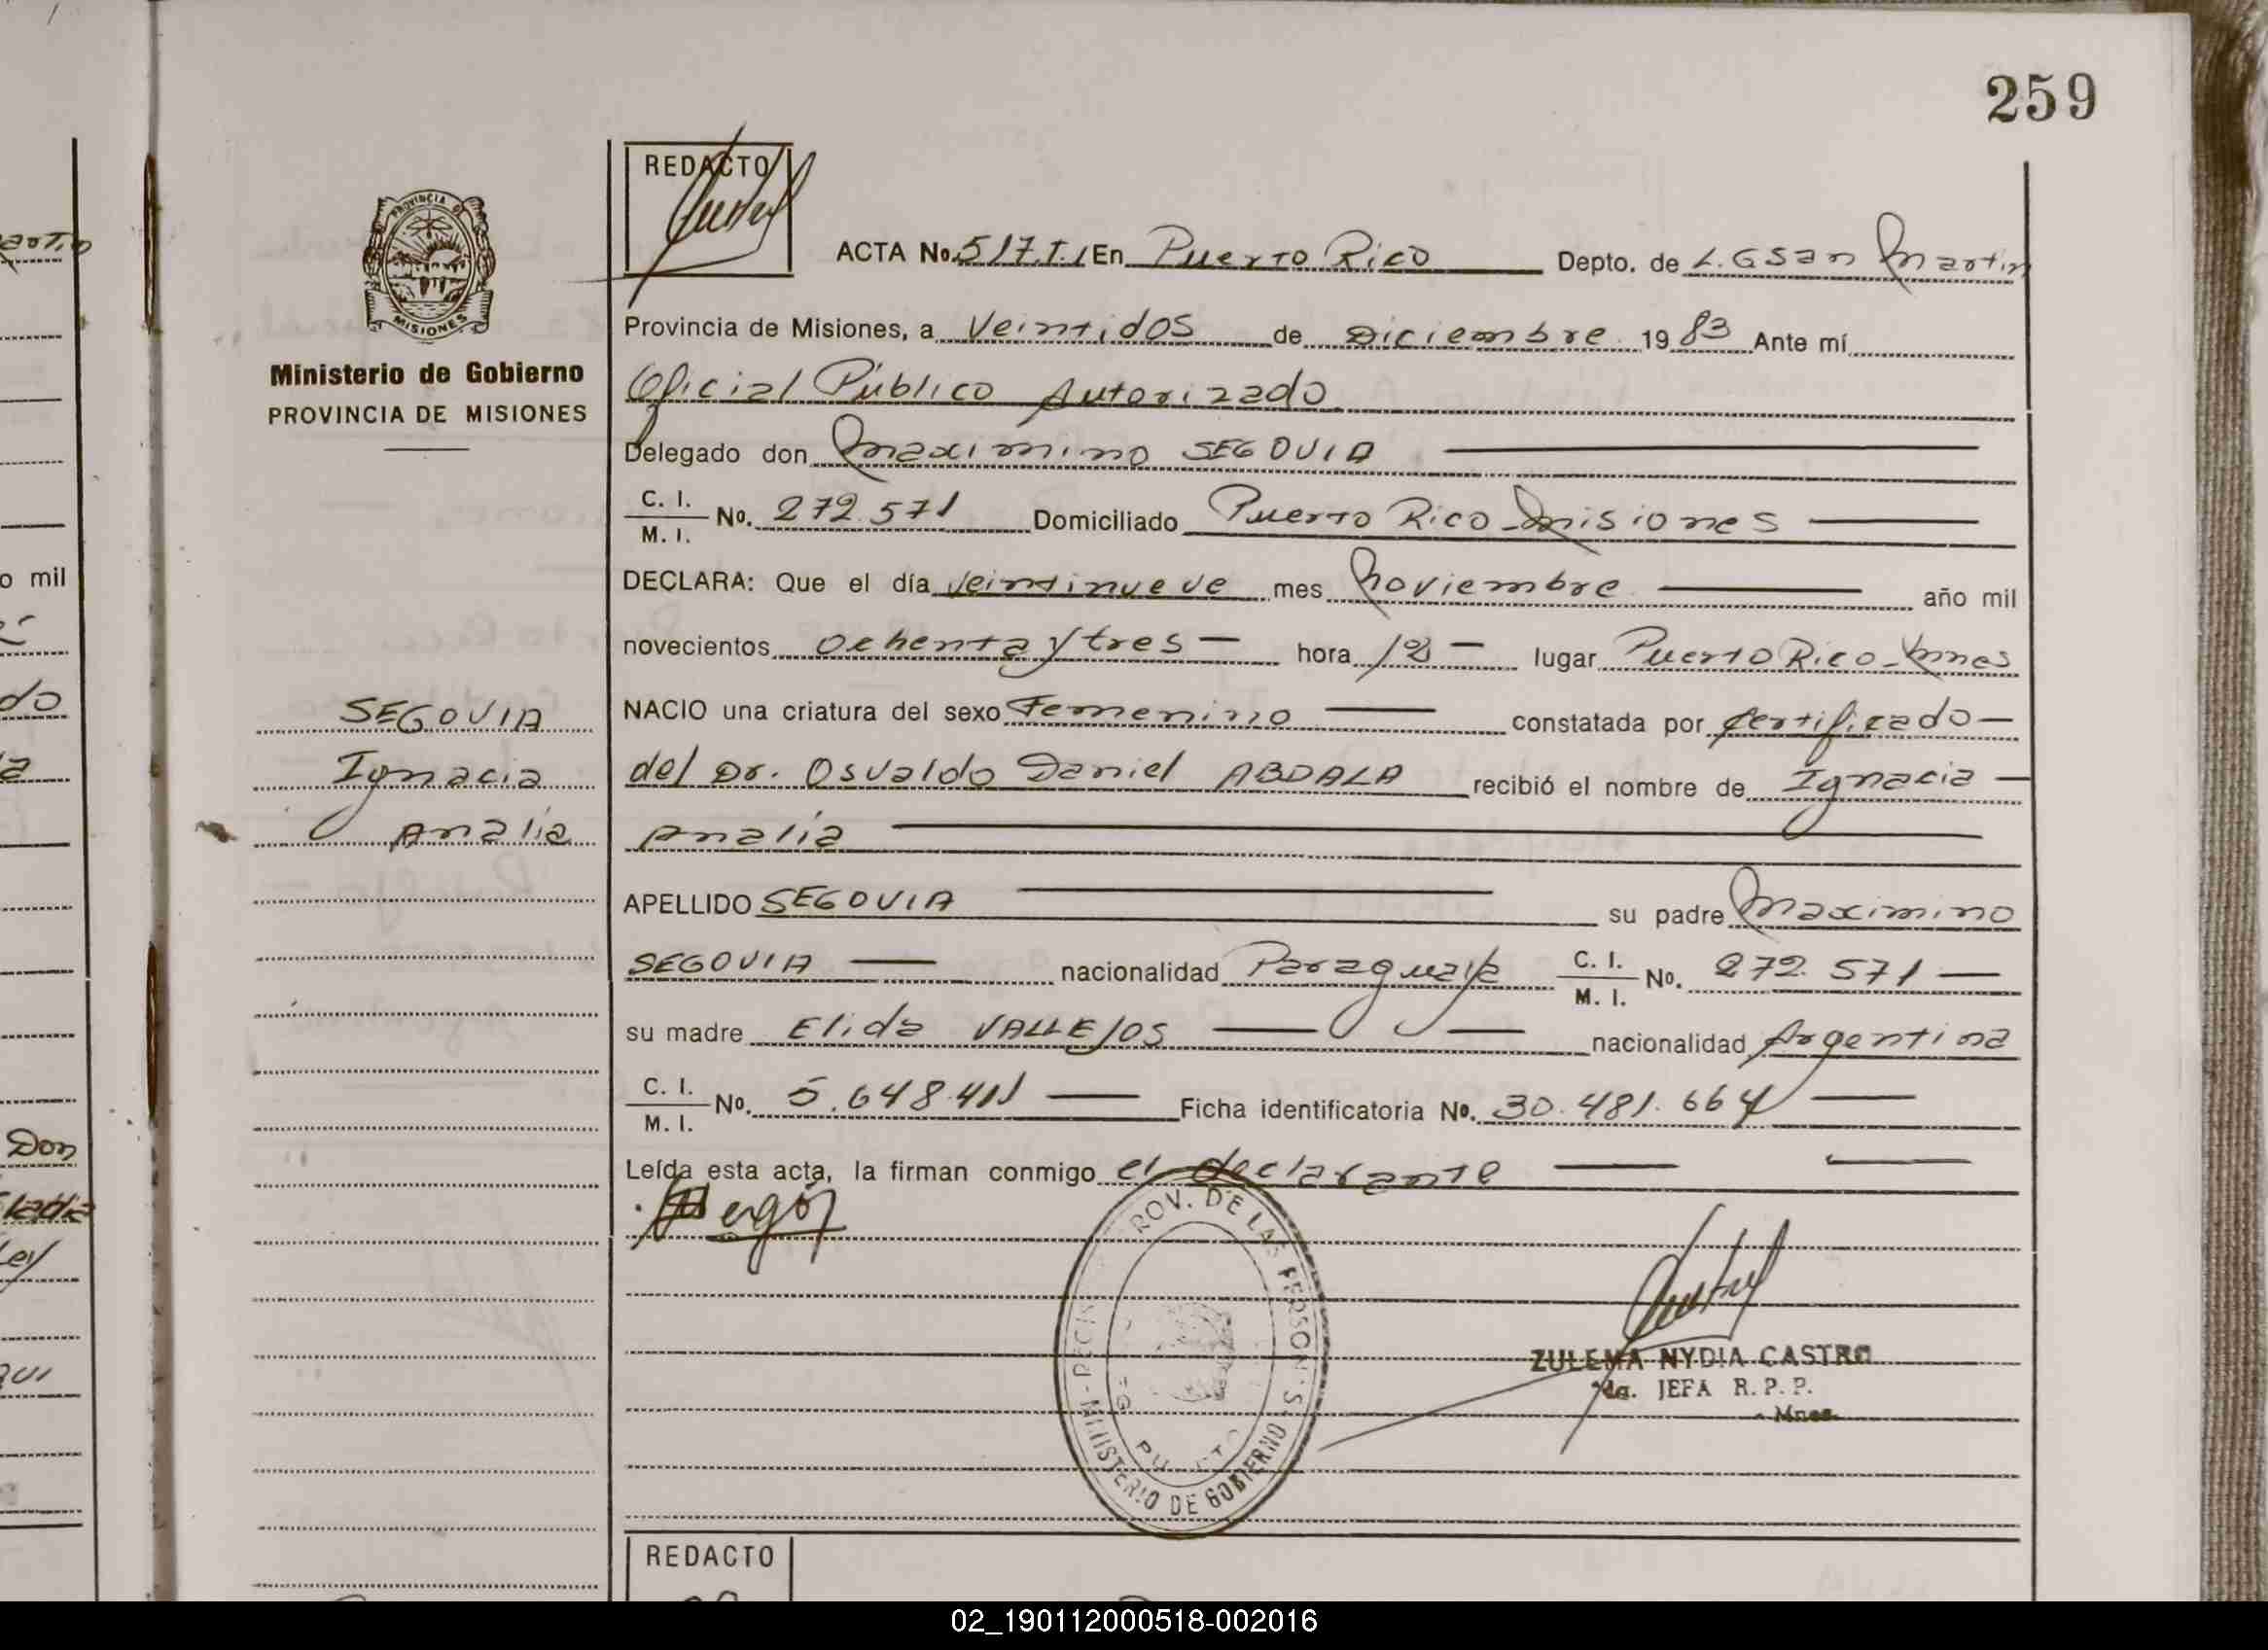 259
REDACTO
ACTA No. 517.T.I En Puerto Rico Depto. de L.G San Martin
Provincia de Misiones, a Veintidos de Diciembre 1983 Ante mí
Oficial Público Autorizado
Delegado don Maximino SEGOVIA
C. I.
M. I. No. 272.571 Domiciliado Puerto Rico - Misiones
DECLARA: Que el día veintinueve mes Noviembre año mil
novecientos ochenta y tres hora lugar Puerto Rico - Mnes
NACIO una criatura del sexo Femenino constatada por Certificado
del Dr. Osvaldo Daniel ABDALA recibió el nombre de Ignacia
Analia
APELLIDO SEGOVIA su padre Maximino
SEGOVIA nacionalidad Paraguaya C. I.
M. I. No. 272.571
su madre Elida VALLEJOS nacionalidad Argentina
C. I.
M. I. No. 5.648.411 Ficha identificatoria No. 30.481.664
Leída esta acta, la firman conmigo el declarante
PROVINCIA DE
MISIONES
Ministerio de Gobierno
PROVINCIA DE MISIONES
SEGOVIA
Ignacia
Analia
ROV. DE LAS PERSON S
MINISTERIO DE GOBIERNO
ZULEMA NYDIA CASTRO
JEFA R. P. P.
Mnes.
REDACTO
artin
o mil
do
Don
02_190112000518-002016